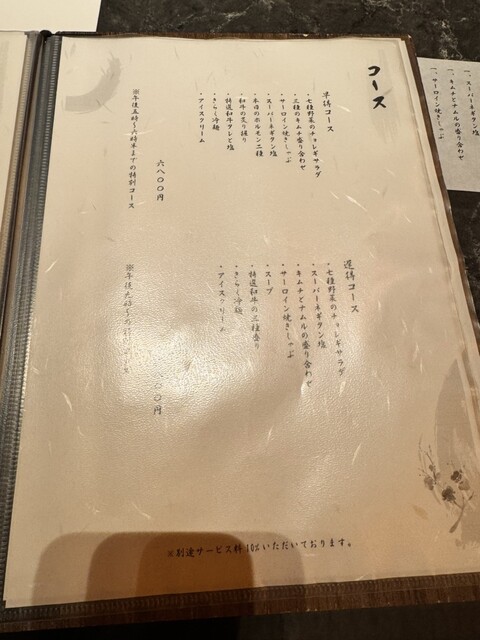 コース
早得コース
・七種野菜のチョレギサラダ
・三種のキムチ盛り合わせ
・サーロイン焼きしゃぶ
・スーパーネギタン塩
・本日のホルモン二種
・和牛の炙り握り
・特選和牛タレと塩
・きらく冷麺
・アイスクリーム
六八〇〇円
※午後五時〜六時半までの特別コース
遅得コース
・七種野菜のチョレギサラダ
・スーパーネギタン塩
・キムチとナムルの盛り合わせ
・サーロイン焼きしゃぶ
・スープ
・特選和牛の三種盛り
・きらく冷麺
・アイスクリーム
〇〇円
※午後九時〜の特別コース
※別途サービス料10%いただいております。
一、スーパーネギタン塩
一、キムチとナムルの盛り合わせ
一、サーロイン焼きしゃぶ